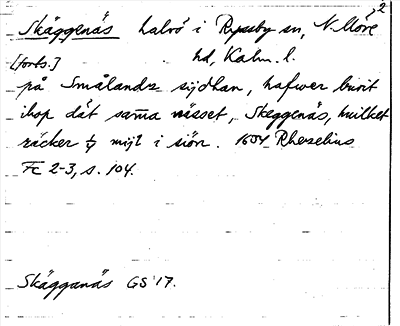 2
Skäggenäs halvö i Ryssby sn, N. Möre
[forts.] hd, Kalm. l.
på Smålandz sijdhan, hafwer burit
ihop dåt sam̄a nässet, Skeggenäs, huilket
räcker ½ mijl i siön. 1604 Rhezelius
Fc 2-3, s. 104.
Skägganäs GS '17.